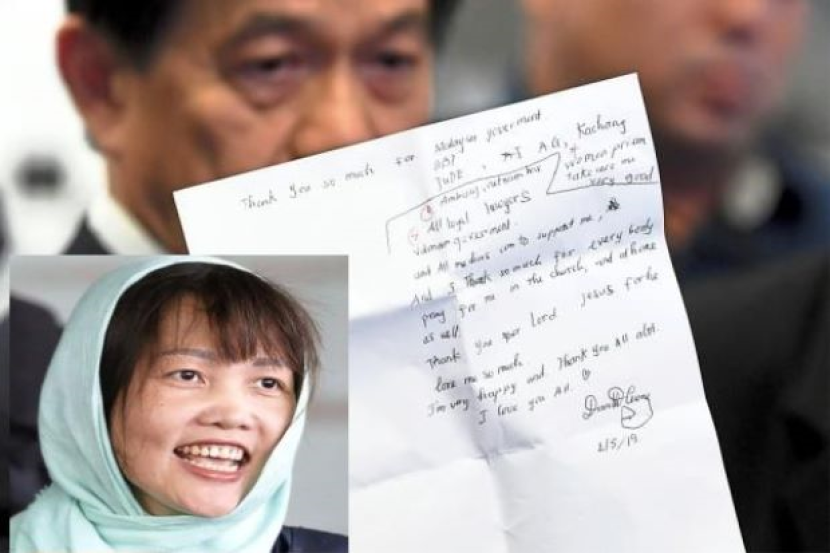 Thank you so much for Malaysian goverment
DPP
JUDE, AG, Kachang
women prison
Take care me
very good
All legal lawyers
Vietnam goverment.
and All medias com to support me,
And I Thank so much for every body
pray for me in the church, and athome
as well.
Thank you lord Jesus
love me so much
I'm very happy and Thank you All alot.
I love you All.
2/5/19